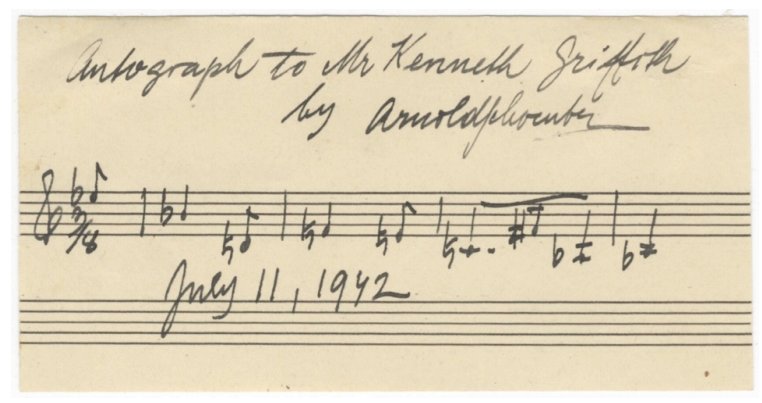 Autograph to Mr Kenneth Griffoth
by Arnold Schoenberg
3/8
July 11, 1942